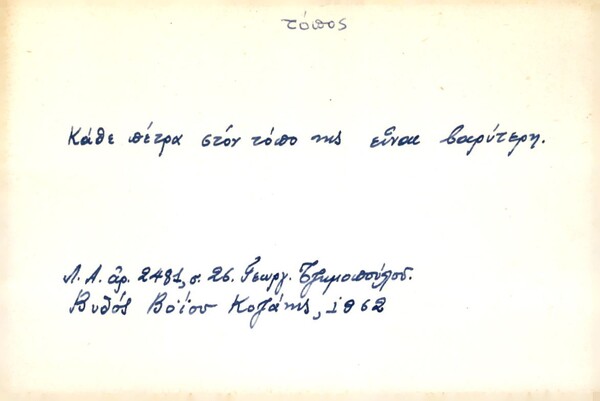 τόπος
Κάθε πέτρα στόν τόπο της εἶναι βαρύτερη.
Λ. Α. ἀρ. 2481, σ. 26. Γεωργ. Τζημοπούλου.
Βυθός Βοΐου Κοζάνης, 1962